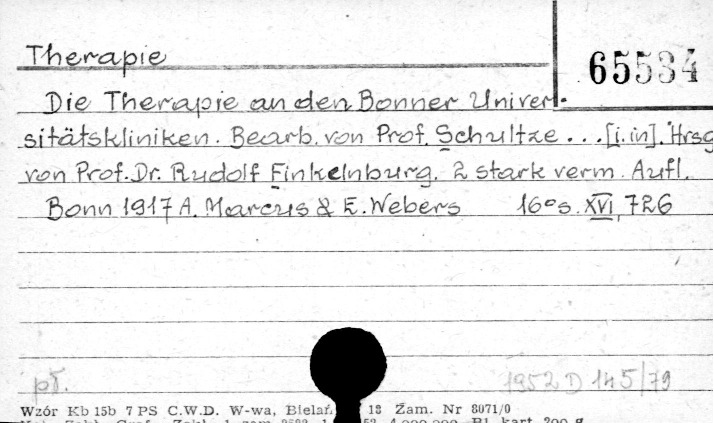 Therapie
65534
Die Therapie an den Bonner Univer-
sitätskliniken. Bearb. von Prof. Schultze ... [i.in]. Hrsg
von Prof. Dr. Rudolf Finkelnburg. 2 stark verm. Aufl.
Bonn 1917 A. Marcus & E. Webers 16° s. XVI, 726
pł. 1952 D 145/79
Wzór Kb 15b 7 PS C.W.D. W-wa, Bielań 18 Zam. Nr 8071/0